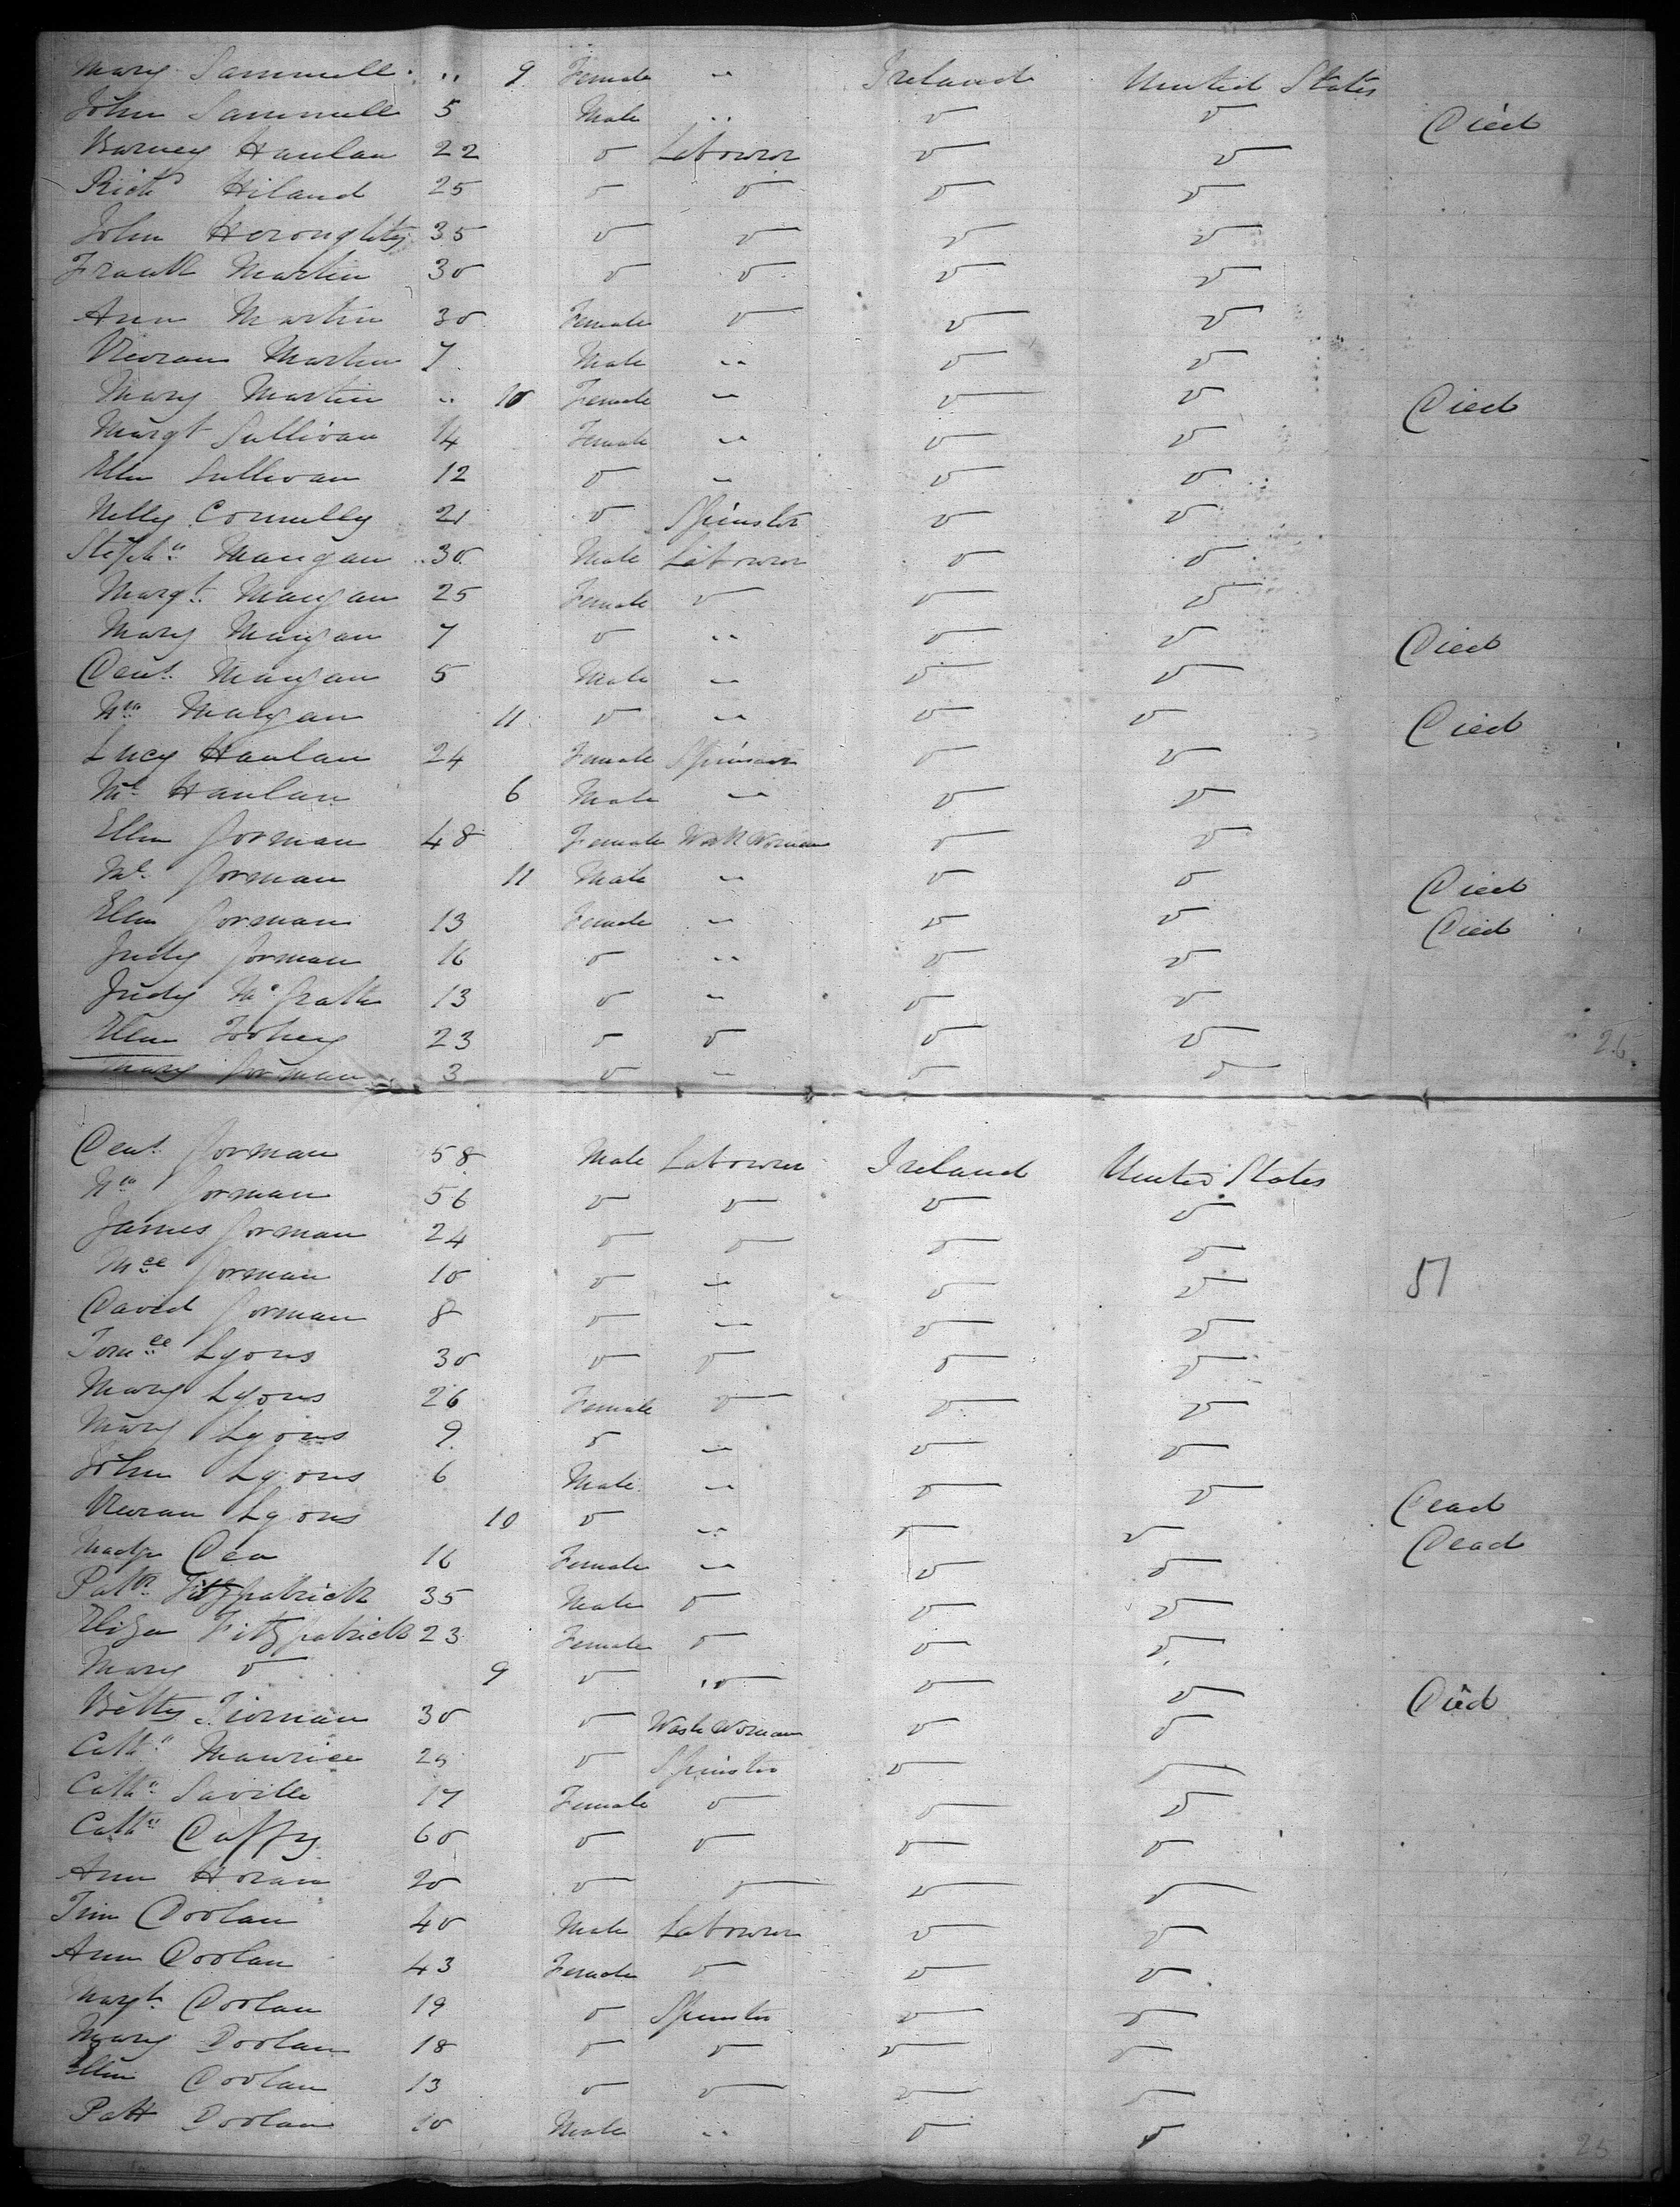 Mary Sammell .. 9 Female " Ireland United States
John Sammell 5 Male " Died
Barney Hanlan 22 Labourer
Richd Hiland 25
John Heroughty 35
Frank Martin 30
Ann Martin 30 Female
Martin 7 Male "
Mary Martin .. 10 Female " Died
Margt Sullivan 14 Female "
Ellen Sullivan 12 "
Nelly Connelly 21 Spinster
Stephn Mangan 30 Male Labourer
Margt Mangan 25 Female
Mary Mangan 7 " Died
Dens Mangan 5 Male "
Wm Mangan 11 " Died
Lucy Hanlan 24 Female Spinster
Ml Hanlan 6 Male "
Ellen Gorman 48 Female Wash Woman
Ml Gorman 11 Male " Died
Ellen Gorman 13 Female " Died
Judy Gorman 16 "
Judy McGrath 13 "
Ellen Toohey 23
Mary Gorman 3 "
26
Dens Gorman 58 Male Labourer Ireland United States
Wm Gorman 56
James Gorman 24
Gorman 10 " 51
David Gorman 8 "
Lyons 30
Mary Lyons 26 Female
Mary Lyons 9 "
John Lyons 6 Male "
Lyons 10 " Dead
Madge Dea 16 Female " Dead
Pattk Fitzpatrick 35 Male
Eliza Fitzpatrick 23 Female
Mary 9 Died
Betty Tiernan 30 Wash Woman
Cathn Maurice 29 Spinster
Cathn Saville 17 Female
Cathn Daffy 60
Ann Horan 20
Tim Doolan 40 Male Labourer
Ann Doolan 43 Female
Margt Doolan 19 Spinster
Mary Doolan 18
Ellen Doolan 13
Patt Doolan 10 Male "
25